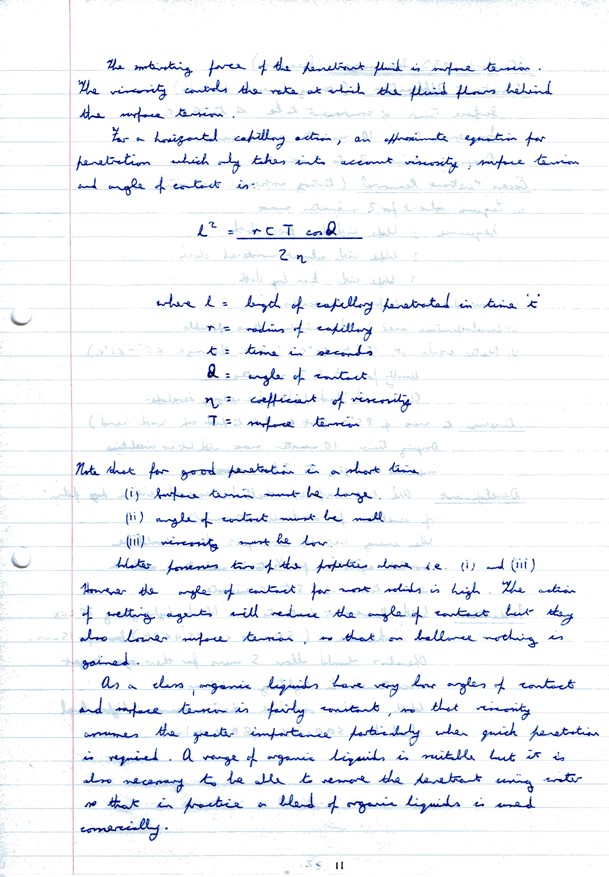 The motivating force of the penetrant fluid is surface tension.
The viscosity controls the rate at which the fluid flows behind
the surface tension.
For a horizontal capillary action, an approximate equation for
penetration which only takes into account viscosity, surface tension
and angle of contact is:
l² = r t T cosθ
2 η
where l = length of capillary penetrated in time 't'
r = radius of capillary
t = time in seconds
θ = angle of contact
η = coefficient of viscosity
T = surface tension
Note that for good penetration in a short time
(i) Surface tension must be large.
(ii) angle of contact must be small
(iii) viscosity must be low.
Water possesses two of the propeties above i.e. (i) and (iii)
However the angle of contact for most solids is high. The action
of wetting agents will reduce the angle of contact but they
also lower surface tension, so that on ballance nothing is
gained.
As a class, organic liquids have very low angles of contact
and surface tension is fairly constant, so that viscosity
assumes the greater importance particularly when quick penetration
is required. A range of organic liquids is suitable but it is
also necessary to be able to remove the penetrant using water
so that in practice a blend of organic liquids is used
comercially.
11